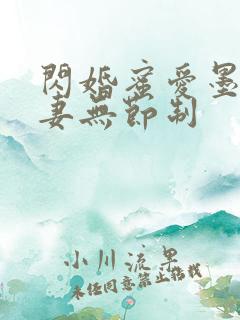 閃婚蜜愛墨
妻無節制
小川流果
未经同意禁止搭载